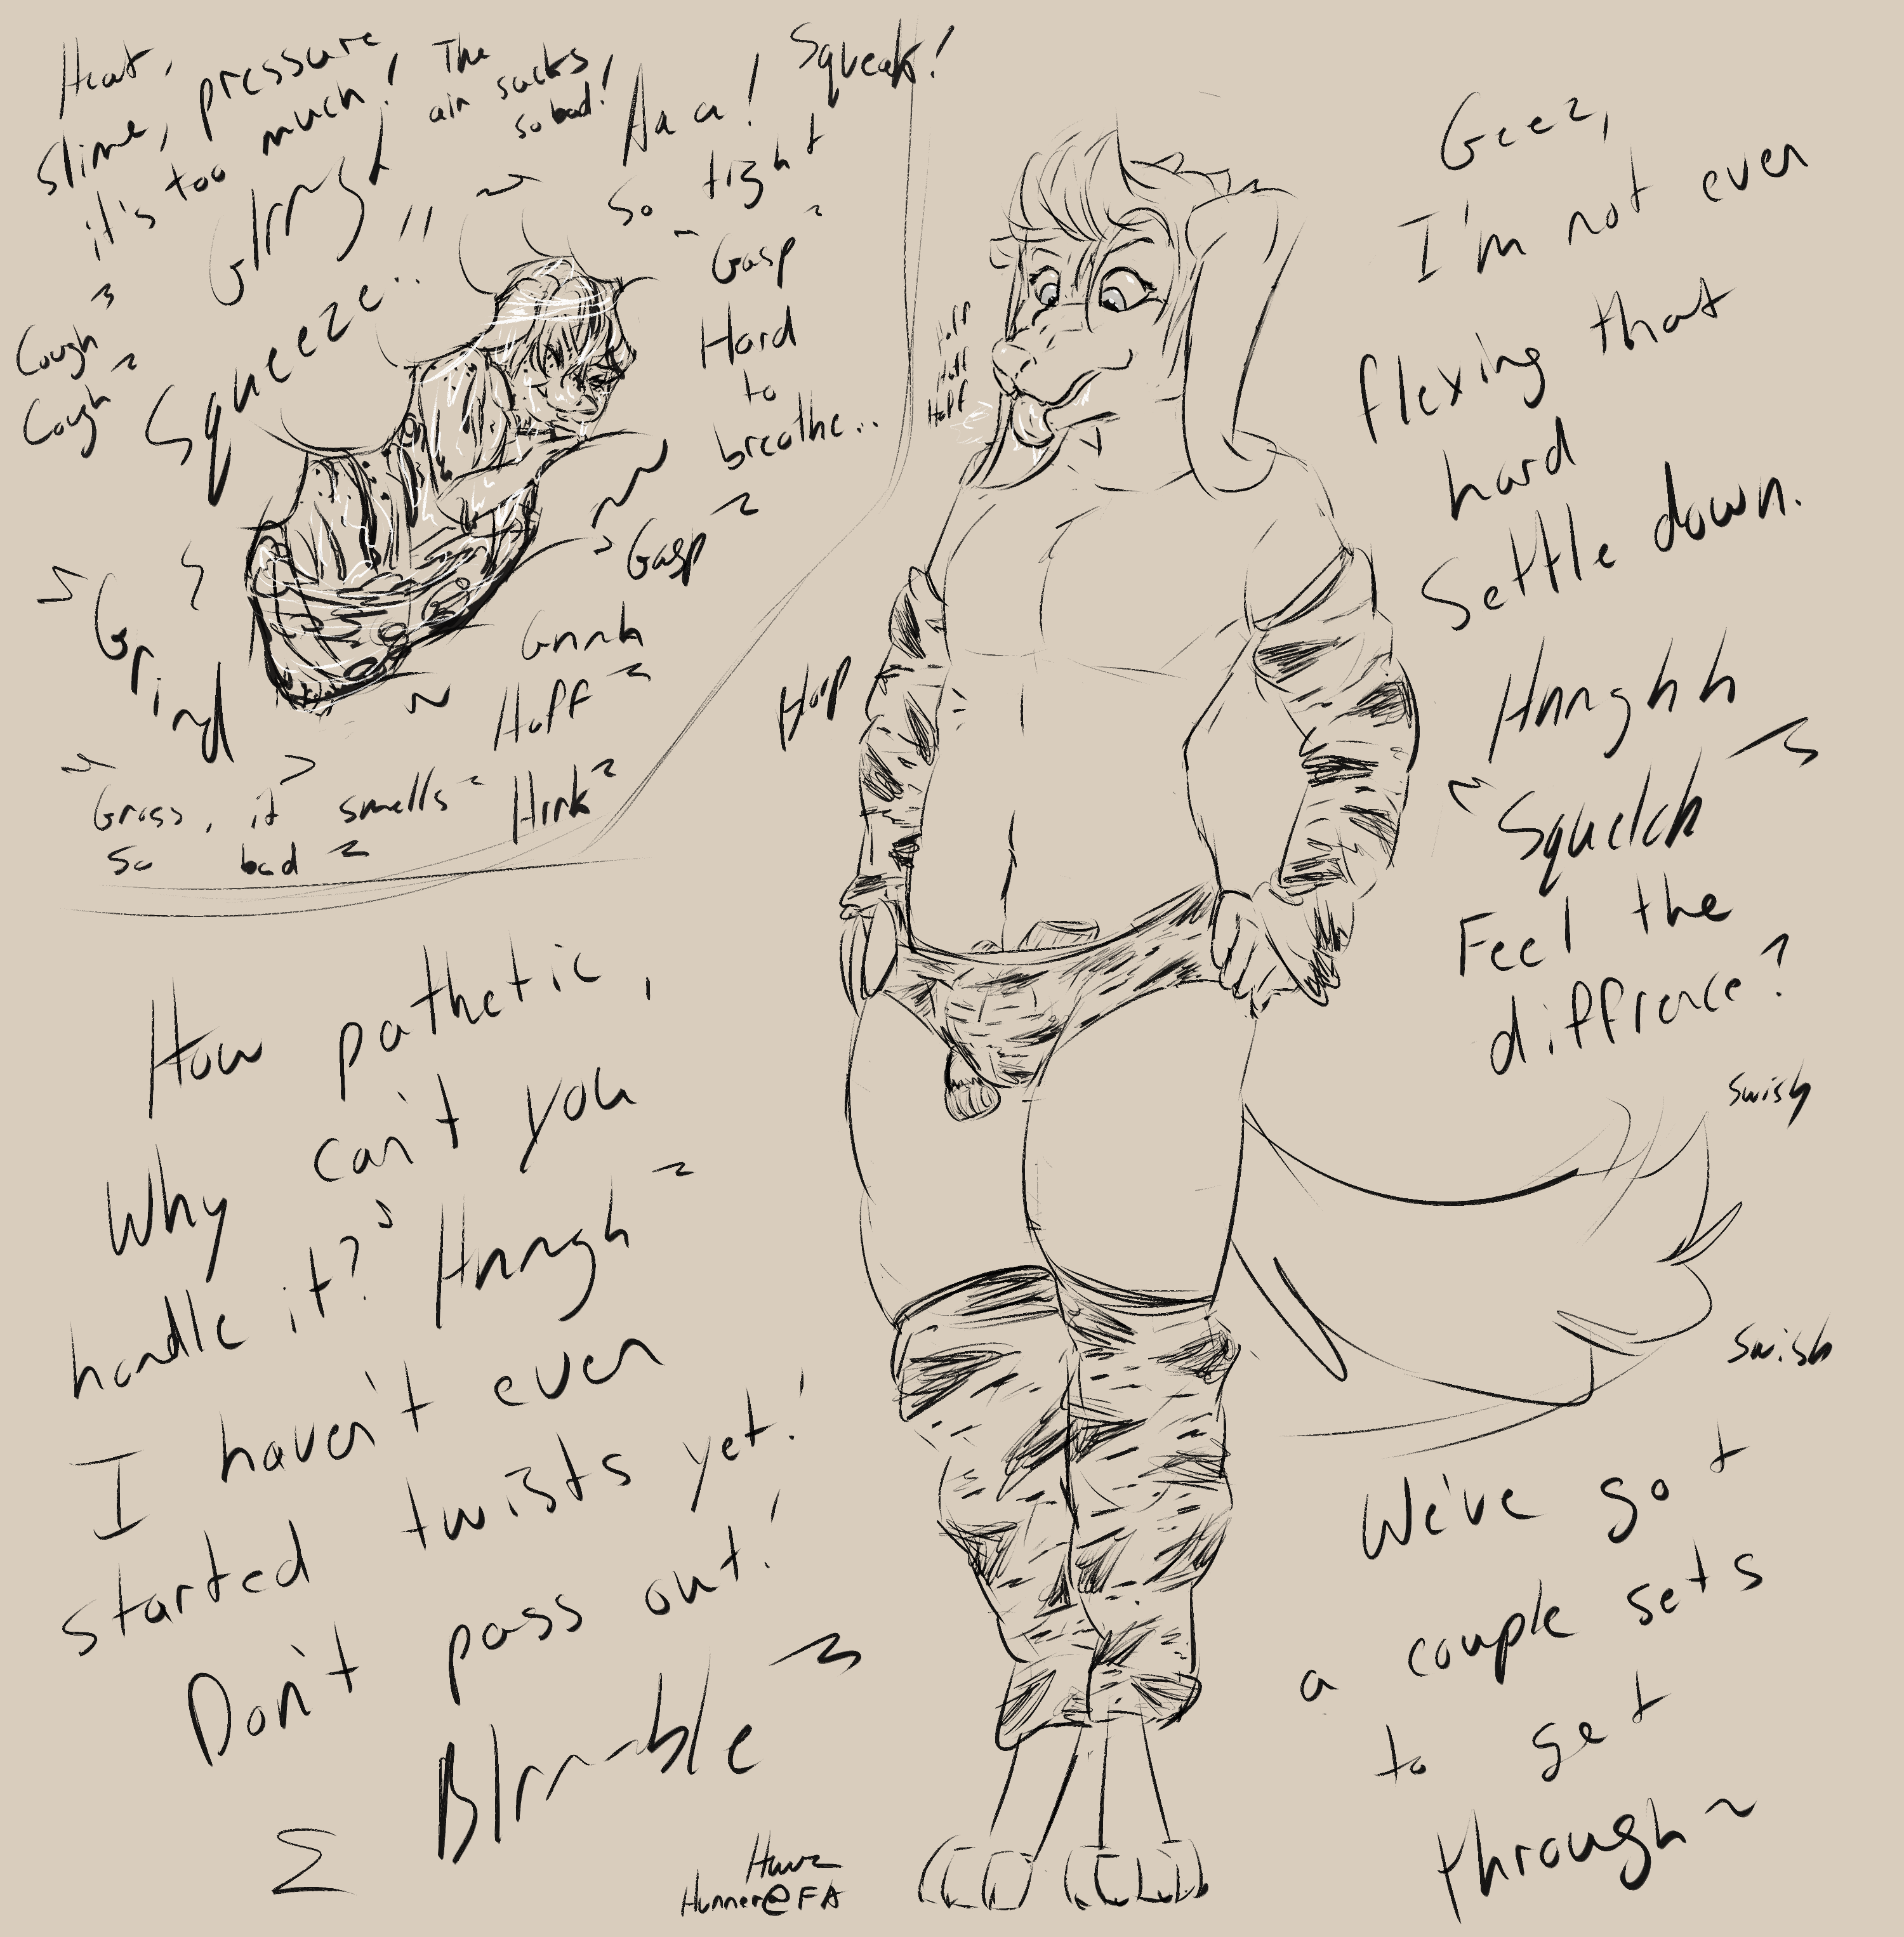 Heat,
slime, pressure
it's too much!
The
air sucks
so bad!
Aaa!
Squeak!
so tight
Gasp
Hard
to
breathe..
Gasp
Glrng
Squeeze..!!
Cough
Cough
Grind
Gross, it smells
so bad
Gnnh
Huff
Hrrk
Huff
Huff
Huff
Hup
Geez,
I'm not even
flexing that
hard
Settle down.
Hnnghh
Squelch
Feel the
diffrence?
swish
swish
How pathetic,
Why can't you
handle it? Hnngh
I haven't even
started twists yet!
Don't pass out!
We've got
a couple sets
to get
through~
Hunner@FA